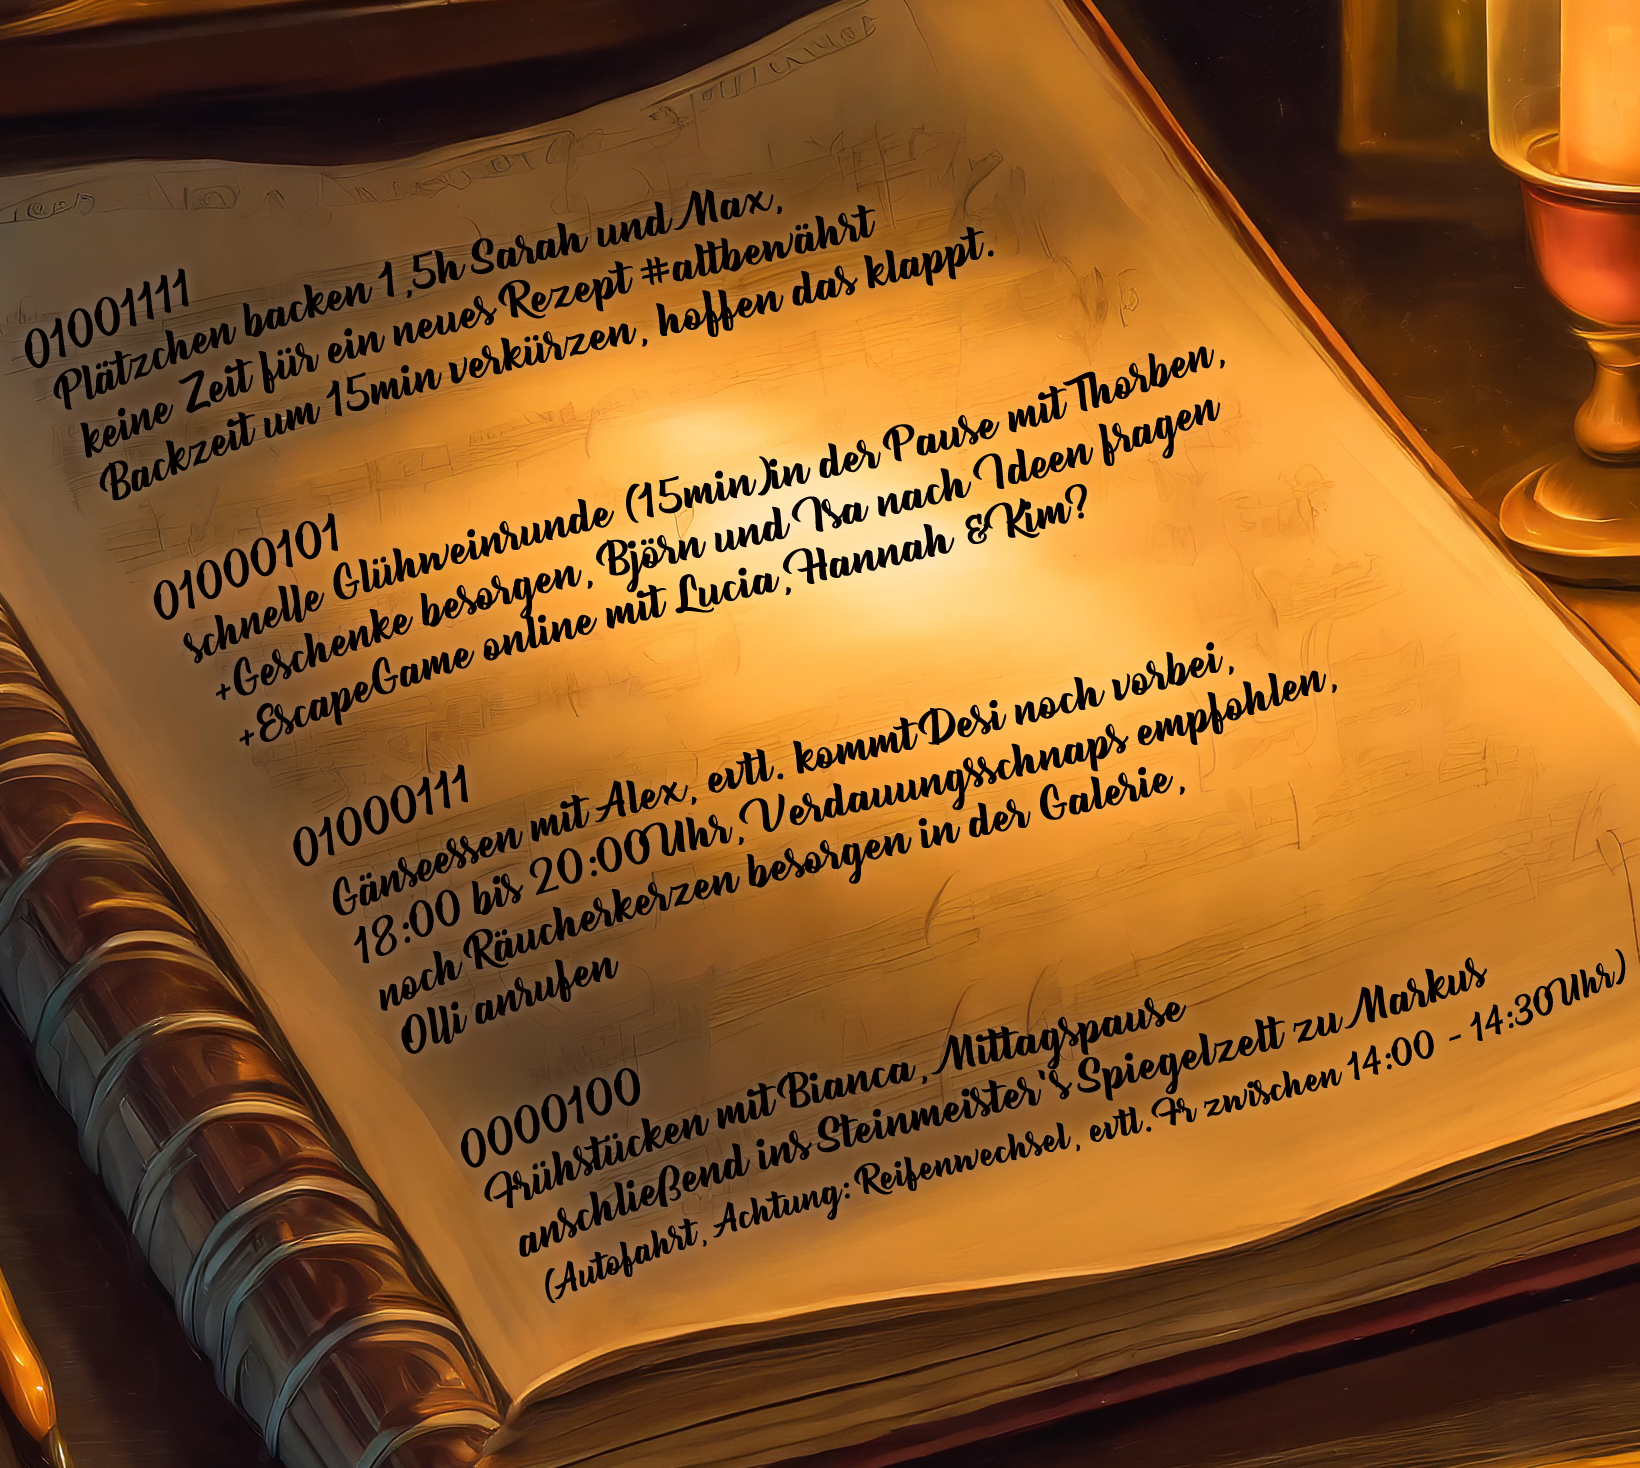 01001111
Plätzchen backen 1,5h Sarah und Max,
keine Zeit für ein neues Rezept #altbewährt
Backzeit um 15min verkürzen, hoffen das klappt.
01000101
schnelle Glühweinrunde (15min)in der Pause mit Thorben,
+Geschenke besorgen, Björn und Isa nach Ideen fragen
+EscapeGame online mit Lucia, Hannah & Kim?
01000111
Gänseessen mit Alex, evtl. kommt Desi noch vorbei,
18:00 bis 20:00Uhr, Verdauungsschnaps empfohlen,
noch Räucherkerzen besorgen in der Galerie,
Olli anrufen
0000100
Frühstücken mit Bianca, Mittagspause
anschließend ins Steinmeister's Spiegelzelt zu Markus
(Autofahrt, Achtung: Reifenwechsel, evtl. Fr zwischen 14:00 - 14:30Uhr)